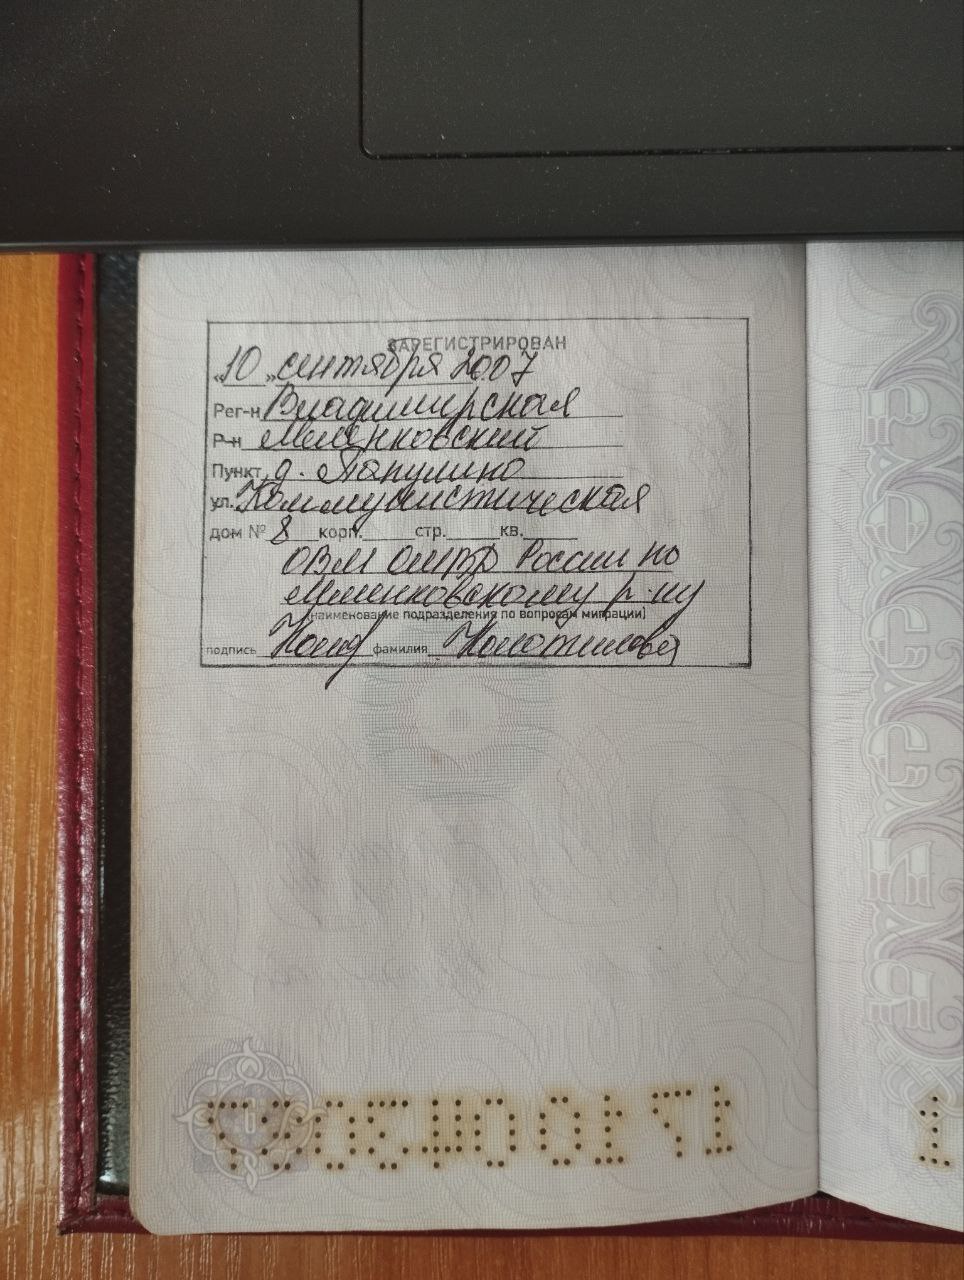 ЗАРЕГИСТРИРОВАН
„10„ сентября 2007
Рег-н Владимирская
Р-н Меленковский
Пункт д. Папулино
ул. Коммунистическая
дом № 8 корп. стр. кв.
ОВМ ОМВД России по
Меленковскому р-ну
(наименование подразделения по вопросам миграции)
подпись фамилия